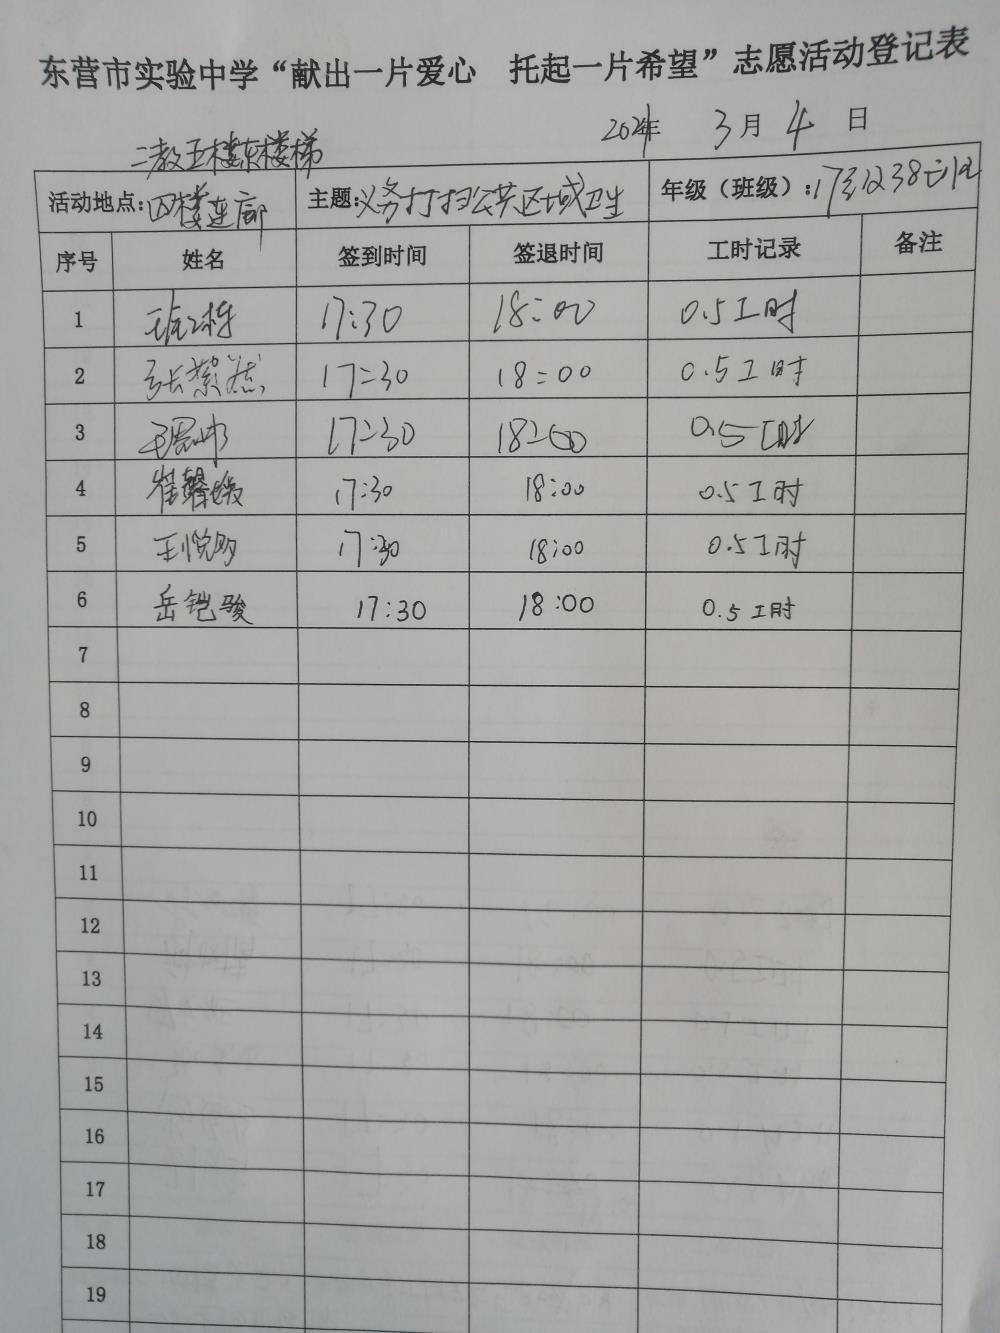 东营市实验中学“献出一片爱心 托起一片希望”志愿活动登记表
年 3月4日
二教五楼东楼梯
活动地点:四楼连廊 主题:义务打扫公共区域卫生 年级(班级):17级
序号 姓名 签到时间 签退时间 工时记录 备注
1 17:30 18:00 0.5工时
2 张紫 17:30 18:00 0.5工时
3 17:30 18:00 0.5工时
4 崔馨 17:30 18:00 0.5工时
5 王悦 17:30 18:00 0.5工时
6 岳铠骏 17:30 18:00 0.5工时
7
8
9
10
11
12
13
14
15
16
17
18
19